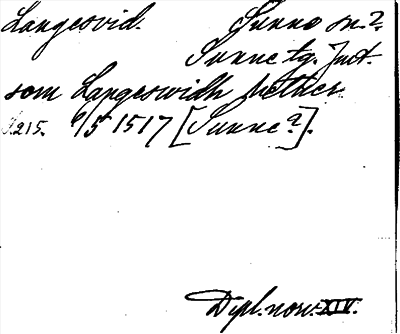 Langesvid. Sunne sn.?
Sunne tg. Jmt.
som Langeswidh hether
S.215. 9/5 1517 [Sunne?].
Dipl. norv. XIV.